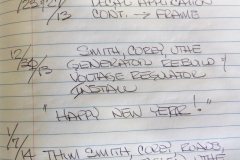 LOCAL APPLICATION
/13 CONT. → FRAME
12/30/13 SMITH, CORY, UTHE
GENERATOR REBUILD
VOLTAGE REGULATOR
INSTALL
"HAPPY NEW YEAR!"
1/7/14 THUM SMITH, CORY, ROADS,
THE